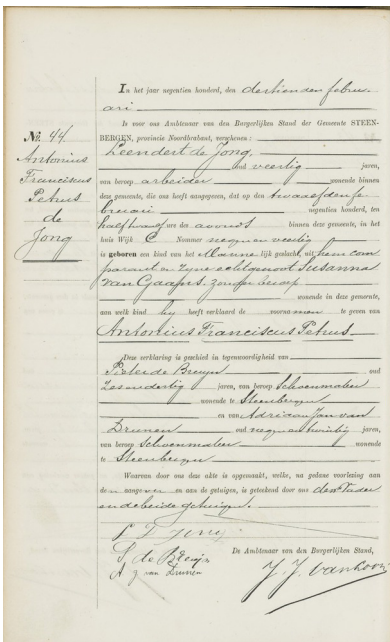 In het jaar negentien honderd, den dertienden febru-
ari
is voor ons Ambtenaar van den Burgerlijken Stand der Gemeente STEEN-
BERGEN, provincie Noordbrabant, verschenen:
No. 44.
Antonius
Franciscus
Petrus
de
Jong
Leendert de Jong,
oud veertig jaren,
van beroep arbeider wonende binnen
deze gemeente, die ons heeft aangegeven, dat op den twaalfden fe
bruari negentien honderd, ten
half twaalf ure des avonds binnen deze gemeente, in het
huis Wijk C Nommer negen en veertig
is geboren een kind van het Manne-lijk geslacht, uit hem com
parant en zijne echtgenoot Susanna
van Gaans, zonder beroep
wonende in deze gemeente,
aan welk kind hij heeft verklaard de voornamen te geven van
Antonius Franciscus Petrus.
Deze verklaring is geschied in tegenwoordigheid van
Pieter de Bruyn oud
zesendertig jaren, van beroep Schoenmaker
wonende te Steenbergen
en van Adriaan Jan van
Drunen oud negenentwintig jaren,
van beroep Schoenmaker wonende
te Steenbergen
Waarvan door ons deze akte is opgemaakt, welke, na gedane voorlezing aan
den aangever en aan de getuigen, is geteekend door ons den Vader
en de beide getuigen.
L D Jong
de Bruijn
De Ambtenaar van den Burgerlijken Stand,
A J van Drunen
J. J. van